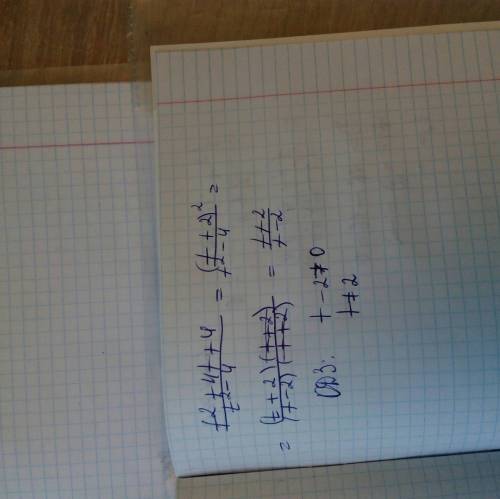 (t²+4t+4)/(t²-4) = (t+2)²/(t²-4) =
= (t+2)(t+2)/(t-2)(t+2) = (t+2)/(t-2)
ОДЗ: t-2≠0
t≠2